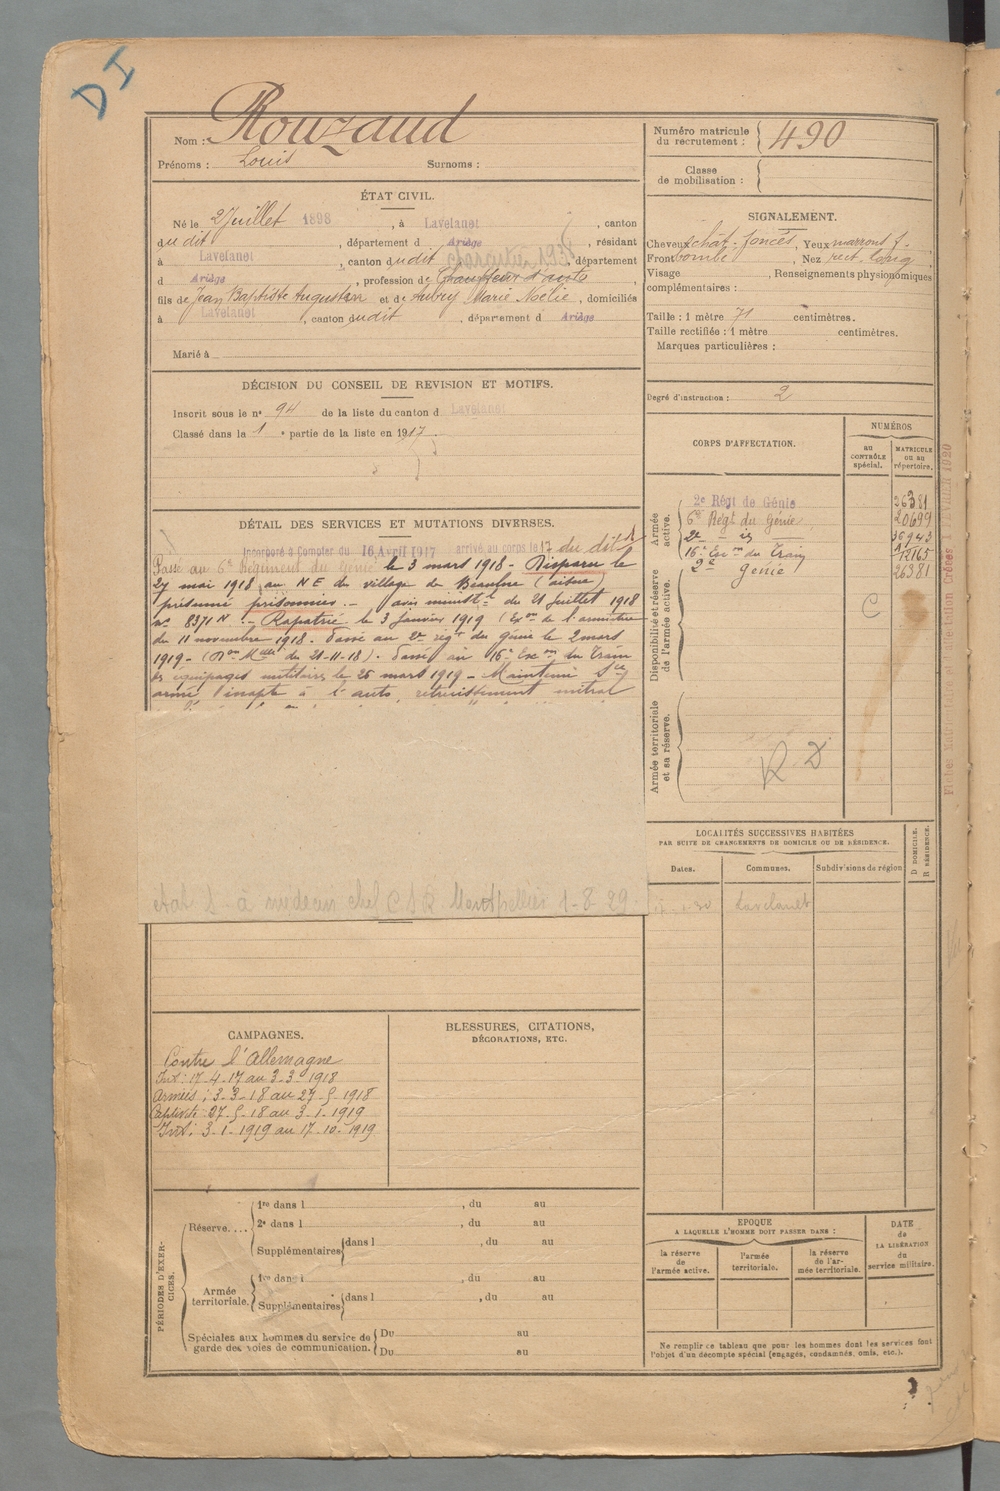 DI
Nom : Rouzaud
Prénoms : Louis Surnoms :
ÉTAT CIVIL.
Né le 2 Juillet 1898, à Lavelanet, canton
dudit, département d Ariège, résidant
à Lavelanet, canton dudit, département
d Ariège, profession de Chauffeur d'auto
fils de Jean Baptiste Augustin et de Aubry Marie Noélie, domiciliés
à Lavelanet, canton dudit, département d Ariège
Marié à
DÉCISION DU CONSEIL DE REVISION ET MOTIFS.
Inscrit sous le n° 94 de la liste du canton d Lavelanet
Classé dans le 1e partie de la liste en 1917.
DÉTAIL DES SERVICES ET MUTATIONS DIVERSES.
Incorporé à Compter du 16 Avril 1917 arrivé au corps le 17 du dit
Passé au 6e Régiment du Génie le 3 mars 1918 - Disparu le
27 mai 1918 au N E du village de Beaulne (aisne)
présumé prisonnier. - avis ministel du 21 Juillet 1918
n° 8371 N. - Rapatrié le 3 janvier 1919 (Exon de l'armistice
du 11 novembre 1918. Passé au 2e régt du génie le 2 mars
1919 - (Don Melle du 21-11-18). Passé au 16e Excon du Train
des équipages militaires le 26 mars 1919 - Maintenu Sce
armé inapte à l'auto, rétrécissement mitral
état S. à médecin chef C S R Montpellier 1-8-29
CAMPAGNES.
Contre l'Allemagne
Int: 17-4-17 au 3-3-1918
Armées: 3-3-18 au 27-5-1918
Captivité: 27-5-18 au 3-1-1919
Int: 3-1-1919 au 17-10-1919
BLESSURES, CITATIONS,
DÉCORATIONS, ETC.
PÉRIODES D'EXER-
CICES.
Réserve....
1re dans l , du au
2e dans l , du au
Supplémentaires dans l , du au
Armée
territoriale.
1re dans l , du au
Supplémentaires dans l , du au
Spéciales aux hommes du service de
garde des voies de communication.
Du au
Du au
Numéro matricule
du recrutement : 490
Classe
de mobilisation :
SIGNALEMENT.
Cheveux chât. foncés, Yeux marrons f.
Front bombé, Nez rect. long
Visage , Renseignements physionomiques
complémentaires :
Taille : 1 mètre 71 centimètres.
Taille rectifiée : 1 mètre centimètres.
Marques particulières :
Degré d'instruction : 2
CORPS D'AFFECTATION.
NUMÉROS
au
CONTRÔLE
spécial.
MATRICULE
ou au
répertoire.
Armée
active.
2e Régt de Génie 26381
6e Régt du Génie 20699
2e - id 36943
16e Excon du Train 12165
2e génie 26381
Disponibilité et réserve
de l'armée active.
C
Armée territoriale
et sa réserve.
R D
LOCALITÉS SUCCESSIVES HABITÉES
PAR SUITE DE CHANGEMENTS DE DOMICILE OU DE RÉSIDENCE.
Dates. Communes. Subdivisions de région
D DOMICILE.
R RÉSIDENCE.
Lavelanet
EPOQUE
A LAQUELLE L'HOMME DOIT PASSER DANS :
la réserve
de
l'armée active.
l'armée
territoriale.
la réserve
de l'ar-
mée territoriale.
DATE
de
LA LIBÉRATION
du
service militaire.
Ne remplir ce tableau que pour les hommes dont les services font
l'objet d'un décompte spécial (engagés, condamnés, omis, etc.).